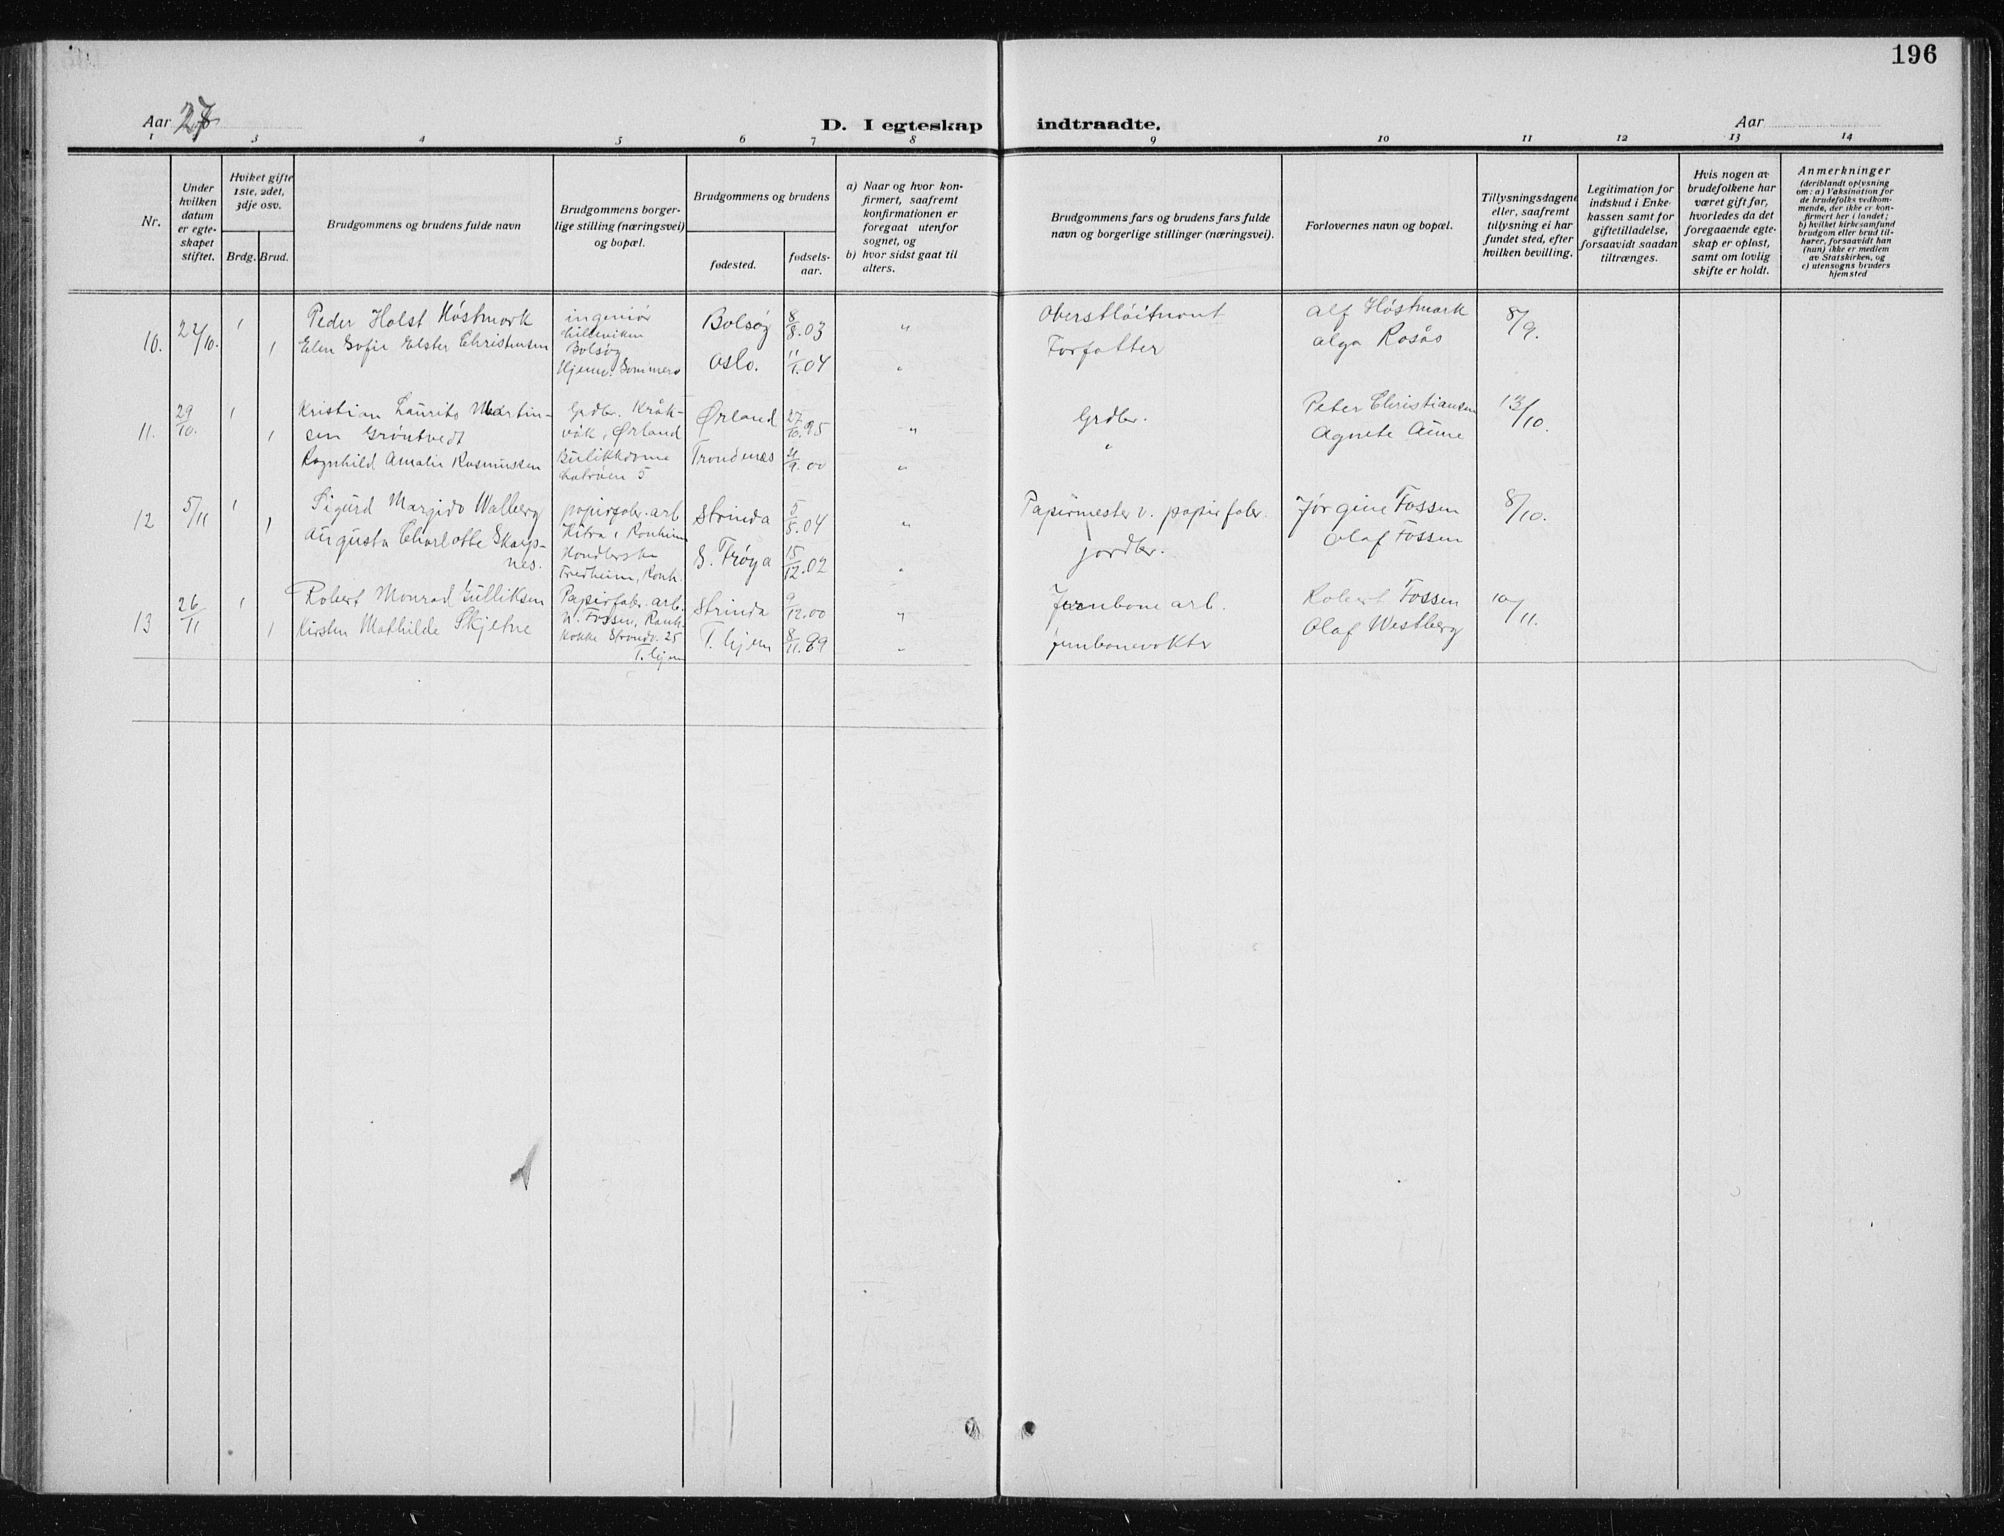 196
Aar 27
D. I egteskap indtraadte.
Aar
1 3 4 5 6 7 8 9 10 11 12 13 14
Nr.
Under
hvilken
datum
er egte-
skapet
stiftet.
Hviket gifte
1ste, 2det,
3dje osv.
Brdg. Brud.
Brudgommens og brudens fulde navn
Brudgommens borger-
lige stilling (næringsvei)
og bopæl.
Brudgommens og brudens
fødested.
fødsels-
aar.
a) Naar og hvor kon-
firmert, saafremt
konfirmationen er
foregaat utenfor
sognet, og
b) hvor sidst gaat til
alters.
Brudgommens fars og brudens fars fulde
navn og borgerlige stillinger (næringsvei).
Forlovernes navn og bopæl.
Tillysningsdagene
eller, saafremt
tillysning ei har
fundet sted, efter
hvilken bevilling.
Legitimation for
indskud i Enke-
kassen samt for
giftetilladelse,
forsaavidt saadan
tiltrænges.
Hvis nogen av
brudefolkene har
været gift før,
hvorledes da det
foregaaende egte-
skap er opløst,
samt om lovlig
skifte er holdt.
Anmerkninger
(deriblandt oplysning
om: a) Vaksination for
de brudefolks vedkom-
mende, der ikke er kon-
firmert her i landet;
b) hvilket kirkesamfund
brudgom eller brud til-
hører, forsaavidt han
(hun) ikke er medlem
av Statskirken, og
c) utensogns bruders
hjemsted
10. 22/10. 1 Peder Holst Höstmark ingeniör Bolsøy 8/8.03 " Oberstlöitnant Alf Höstmark 8/9.
1 Elen Sofie Elster Christensen Bolsøy Oslo. 11/1.04 " Forfatter Alga Rosås
11. 29/10. 1 Kristian Laurits Martin- Grdbr. Kråk- Ørland 27/10.95 " Grdbr. Peter Christiansen 13/10.
1 sen Gröntvedt våk, Ørland " Agnete Aune
Ragnhild Amalie Rasmussen Butikkdame Trondenes /9.00 "
5
12 5/11 1 Sigurd Margido Walberg papirfabr. arb. Strinda 5/5.04 " Papirmester v. papirfabr. Jörgine Fossen 8/10.
1 Augusta Charlotte Skarp- Hitra, Ranheim Olaf Fossen
nes. S. Fröya 15/12.02 " jordbr.
Fredheim, Ranh.
13 26/11 1 Robert Monrad Gulliksen Papirfabr. arb. Strinda 9/12.00 " Jernbane arb. Robert Fossen 10/11.
1 Kirsten Mathilde Skjetne N. Fossen, Ranh. T.hjem 8/11.99 " Jernbanevokter Olaf Westberg
Kokke Strandv. 25
T.hjem